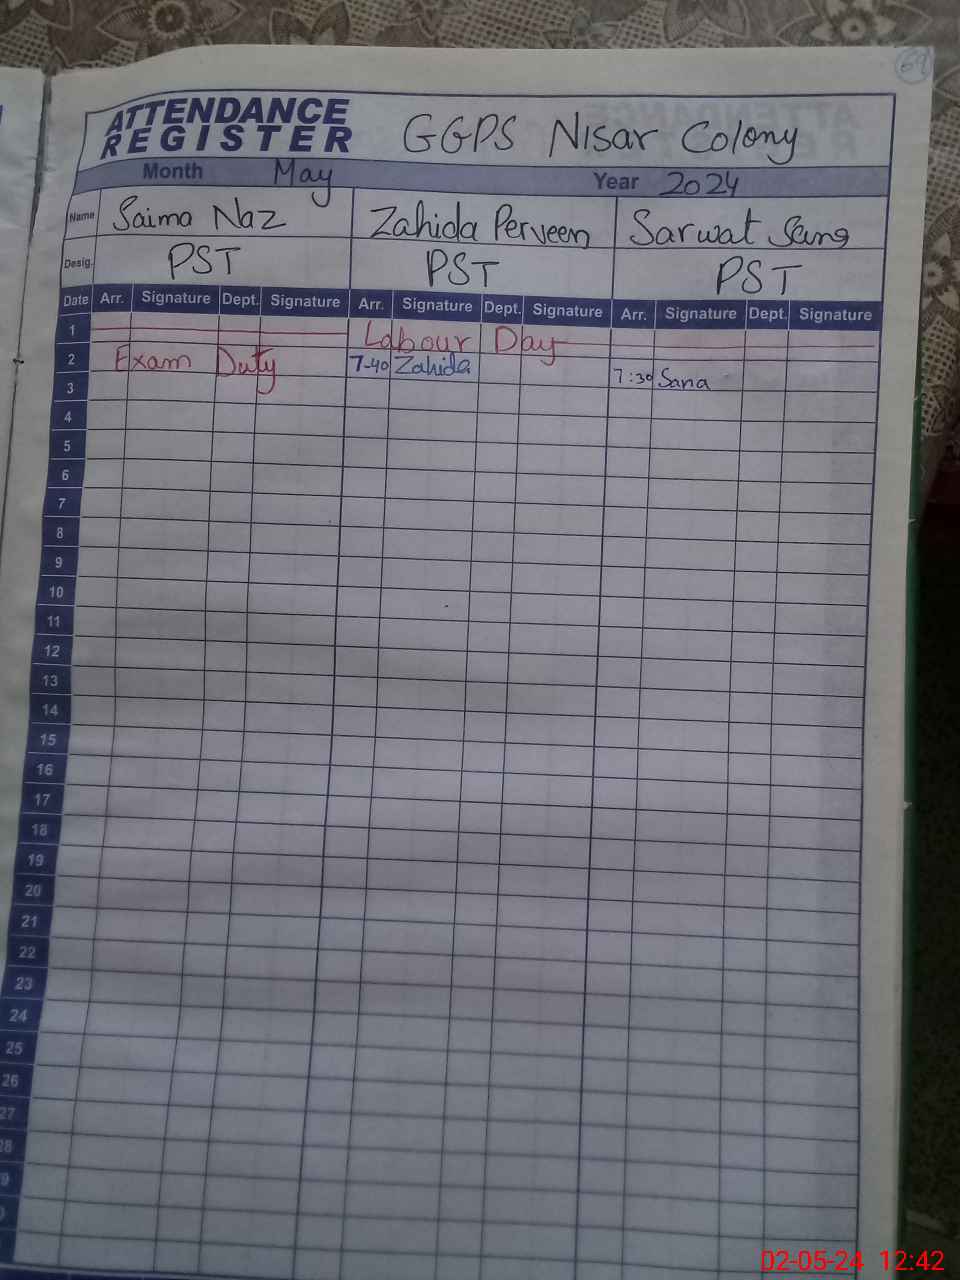 69
ATTENDANCE
REGISTER
GGPS Nisar Colony
Month May Year 2024
Name Saima Naz Zahida Perveen Sarwat Sana
Desig. PST PST PST
Date Arr. Signature Dept. Signature Arr. Signature Dept. Signature Arr. Signature Dept. Signature
1 Labour Day
2 Exam Duty 7-40 Zahida 7:30 Sana
3
4
5
6
7
8
9
10
11
12
13
14
15
16
17
18
19
20
21
22
23
24
25
26
27
28
9
02-05-24 12:42